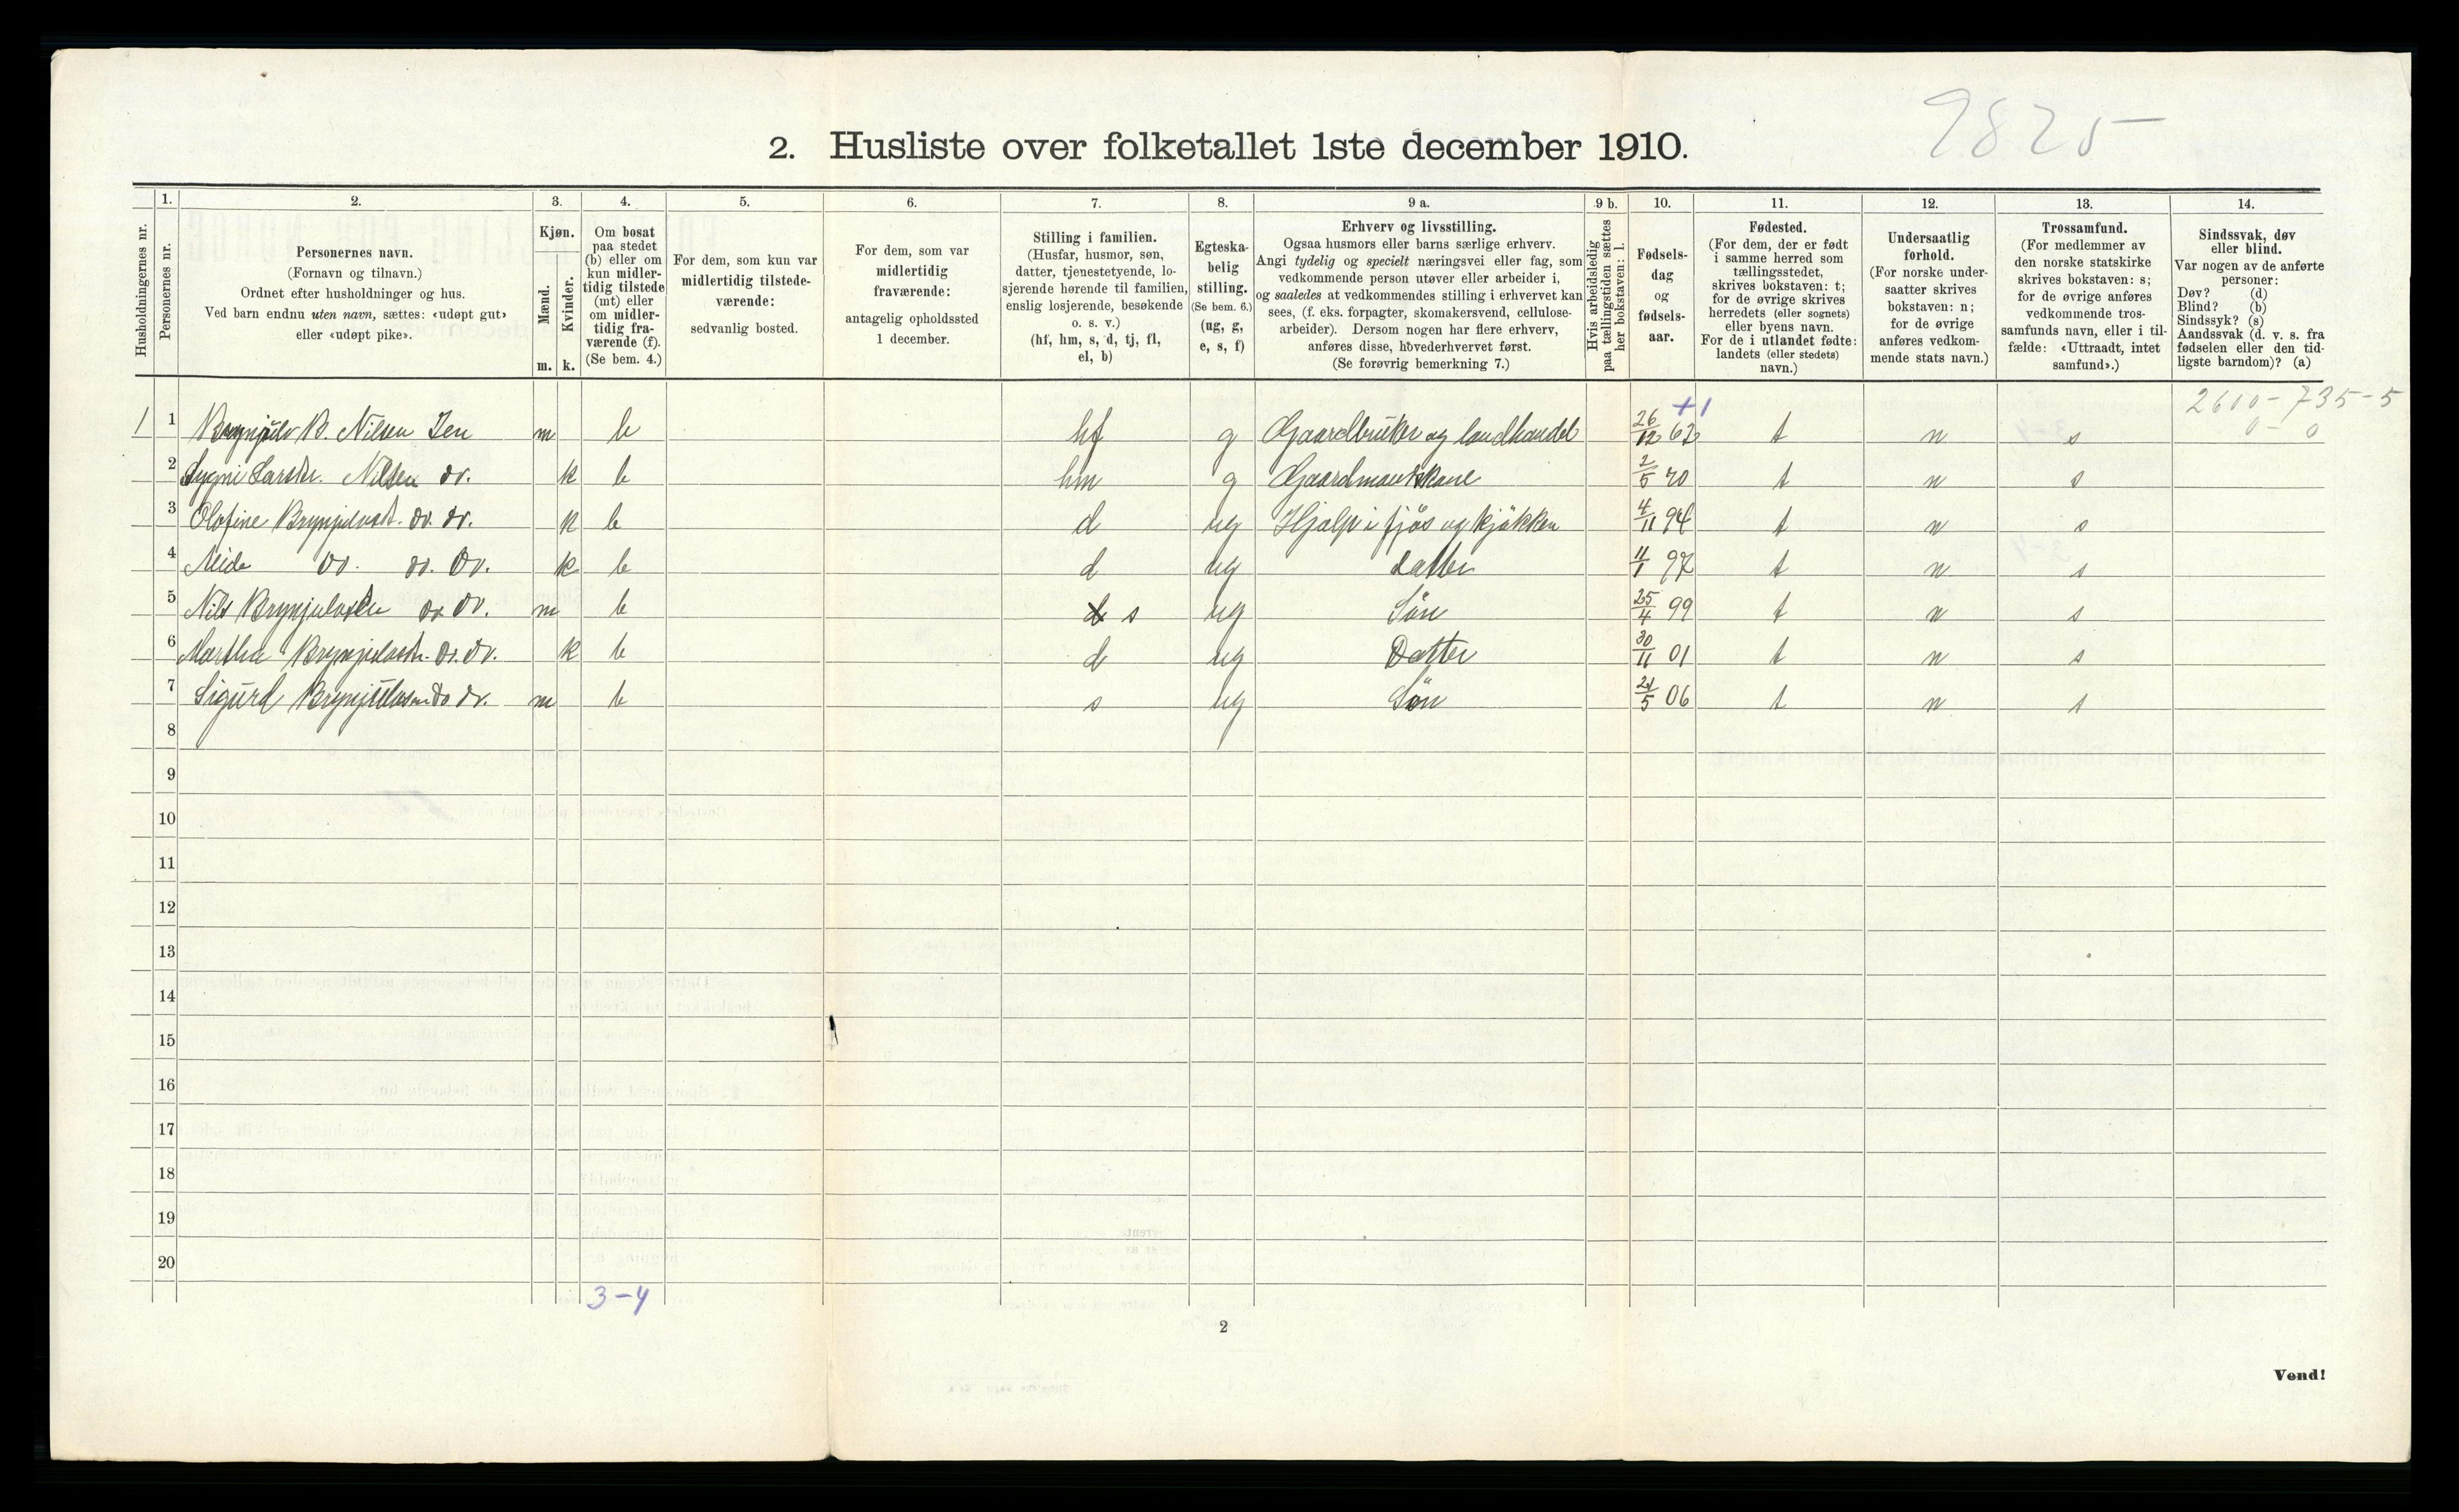 9825
2. Husliste over folketallet 1ste december 1910.
Husholdningernes nr.
1.
Personernes nr.
2.
Personernes navn.
(Fornavn og tilnavn.)
Ordnet efter husholdninger og hus.
Ved barn endnu uten navn, sættes: «udøpt gut»
eller «udøpt pike».
3.
Kjøn.
Mænd.
Kvinder.
m. k.
4.
Om bosat
paa stedet
(b) eller om
kun midler-
tidig tilstede
(mt) eller
om midler-
tidig fra-
værende (f).
(Se bem. 4.)
5.
For dem, som kun var
midlertidig tilstede-
værende:
sedvanlig bosted.
6.
For dem, som var
midlertidig
fraværende:
antagelig opholdssted
1 december.
7.
Stilling i familien.
(Husfar, husmor, søn,
datter, tjenestetyende, lo-
sjerende hørende til familien,
enslig losjerende, besøkende
o. s. v.)
(hf, hm, s, d, tj, fl,
el, b)
8.
Egteska-
belig
stilling.
(Se bem. 6.)
(ug, g,
e, s, f)
9 a.
Erhverv og livsstilling.
Ogsaa husmors eller barns særlige erhverv.
Angi tydelig og specielt næringsvei eller fag, som
vedkommende person utøver eller arbeider i,
og saaledes at vedkommendes stilling i erhvervet kan
sees, (f. eks. forpagter, skomakersvend, cellulose-
arbeider). Dersom nogen har flere erhverv,
anføres disse, hovederhvervet først.
(Se forøvrig bemerkning 7.)
9 b.
Hvis arbeidsledig
paa tællingstiden sættes
her bokstaven: l.
10.
Fødsels-
dag
og
fødsels-
aar.
11.
Fødested.
(For dem, der er født
i samme herred som
tællingsstedet,
skrives bokstaven: t;
for de øvrige skrives
herredets (eller sognets)
eller byens navn.
For de i utlandet fødte:
landets (eller stedets)
navn.)
12.
Undersaatlig
forhold.
(For norske under-
saatter skrives
bokstaven: n;
for de øvrige
anføres vedkom-
mende stats navn.)
13.
Trossamfund.
(For medlemmer av
den norske statskirke
skrives bokstaven: s;
for de øvrige anføres
vedkommende tros-
samfunds navn, eller i til-
fælde: «Uttraadt, intet
samfund».)
14.
Sindssvak, døv
eller blind.
Var nogen av de anførte
personer:
Døv? (d)
Blind? (b)
Sindssyk? (s)
Aandssvak (d. v. s. fra
fødselen eller den tid-
ligste barndom)? (a)
+1 2610-735-5
0-0
1 1 Brynjulv B. Nilsen m b hf g Gaardbruker og landhandel 26/12 62 t n s
2 Larsdtr. Nilsen do. k b hm g Gaardmandskone 2/5 70 t n s
3 Olofine Brynjulvsdt. do. do. k b d ug Hjælp i fjøs og kjøkken 4/11 94 t n s
4 Do. do. Do. k b d ug datter 11/1 97 t n s
5 Nils Brynjulvsen do Do. m b d s ug Søn 25/4 99 t n s
6 Martha Brynjulvsdtr. do. do. k b d ug Datter 30/11 01 t n s
7 Sigurd Brynjulvsen do do. m b s ug Søn 21/5 06 t n s
8
9
10
11
12
13
14
15
16
17
18
19
20
3-4
2
Vend!